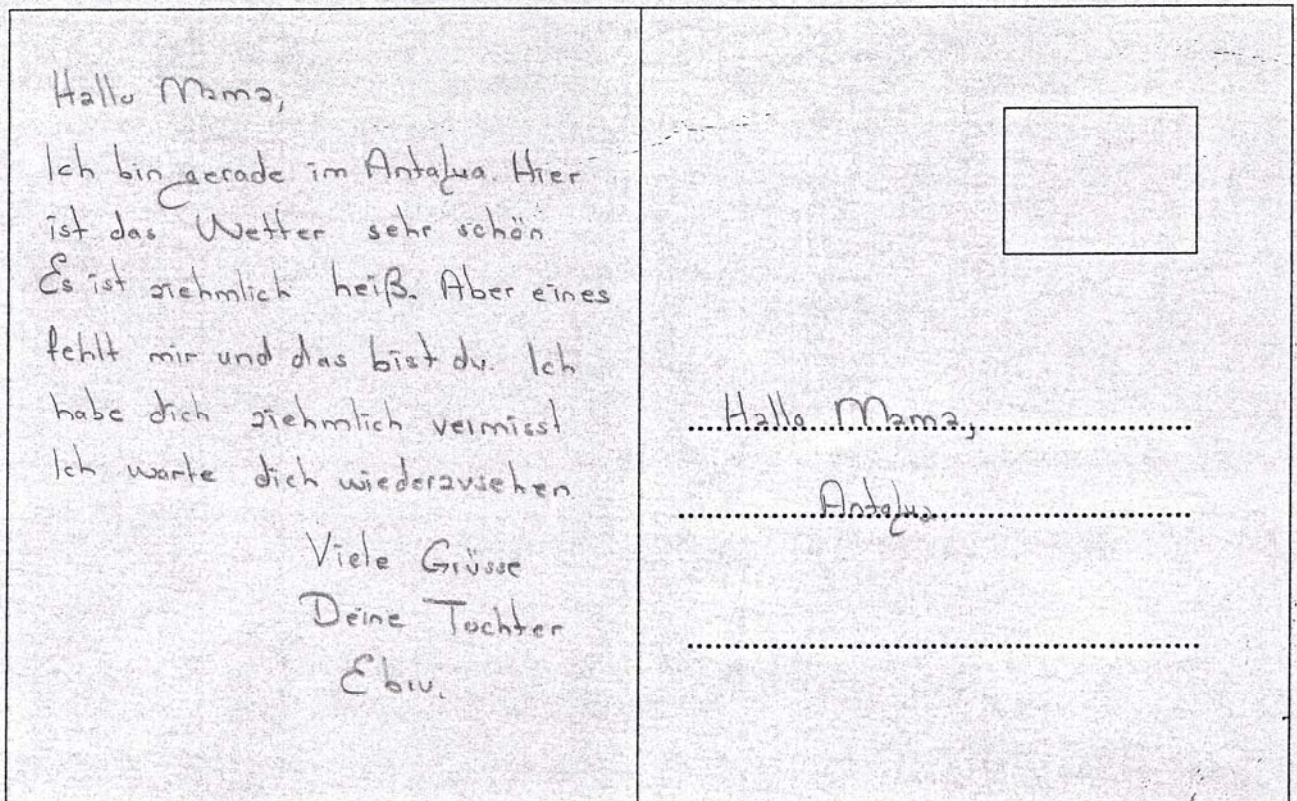 Hallo Mama,
Ich bin gerade im Antalya. Hier
ist das Wetter sehr schön
Es ist ziehmlich heiß. Aber eines
fehlt mir und das bist du. Ich
habe dich ziehmlich vermisst
Ich warte dich wiederzusehen
Viele Grüsse
Deine Tochter
Ebru.
Hallo Mama,
Antalya.